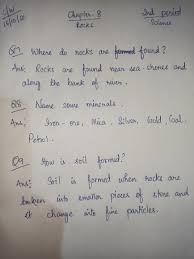 C/W
Chapter. 8
2nd period
Rocks
Science
Q7 Where do rocks are found?
Ans: Rocks are found near sea-shores and
along the bank of rivers.
Q8. Name some minerals.
Ans: Iron-ore, Mica, Silver, Gold, Coal,
Petrol..
Q9 How is soil formed?
Ans: Soil is formed when rocks are
broken into smaller pieces of stone and
it change into fine particles.